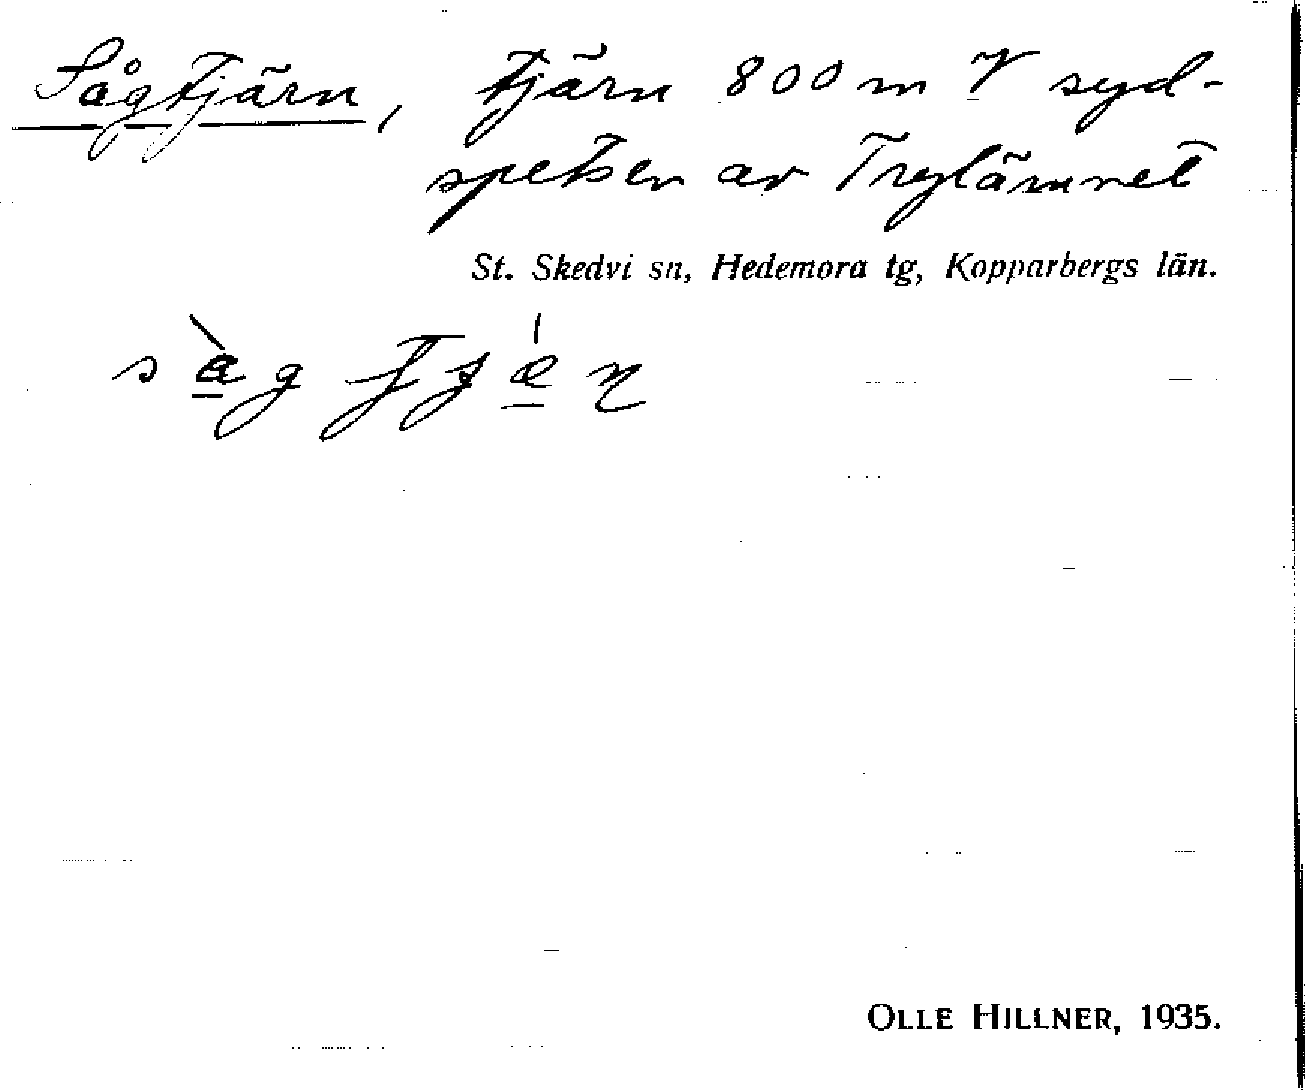 Sågtjärn, tjärn 800 m V syd-
spetsen av
St. Skedvi sn, Hedemora tg, Kopparbergs län.
OLLE HILLNER, 1935.